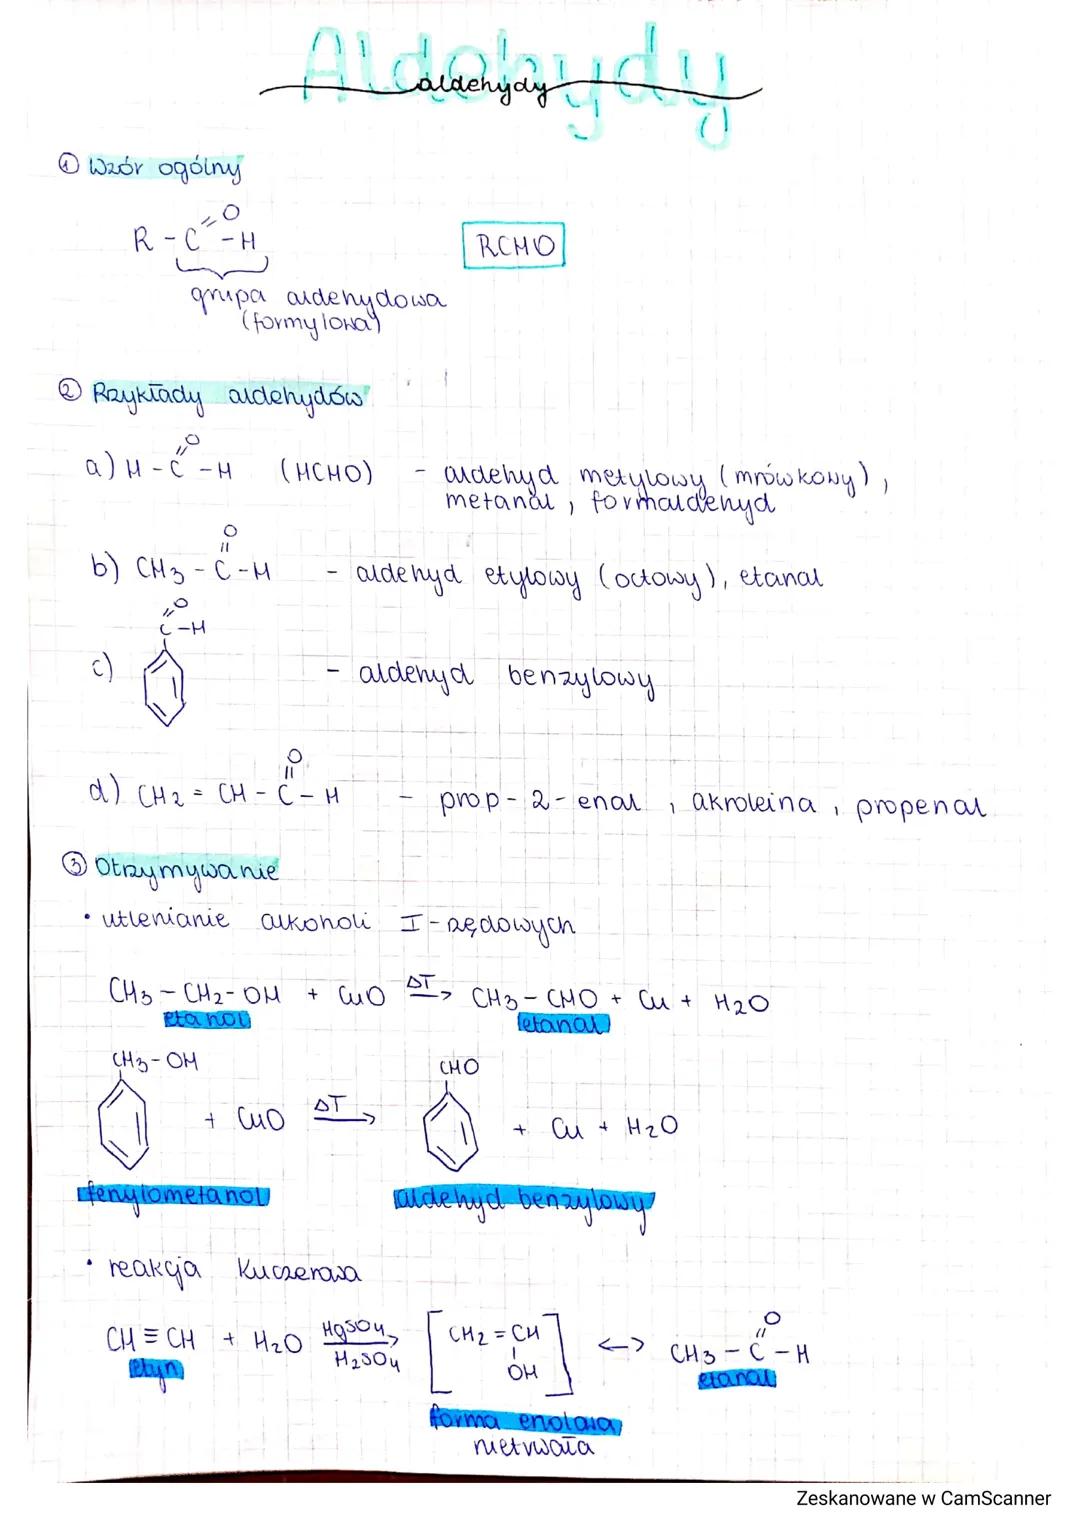 Aldehydy
aldehydy
① Wzór ogólny
R - C = O - H
RCHO
grupa aldehydowa
(formylowa)
② Przykłady aldehydów
a) H - C = O - H (HCHO) - aldehyd metylowy (mrówkowy),
metanal, formaldehyd
b) CH3 - C = O - H - aldehyd etylowy (octowy), etanal
C = O - H
c) - aldehyd benzylowy
d) CH2 = CH - C = O - H - prop-2-enal, akroleina, propenal
③ Otrzymywanie
• utlenianie alkoholi I-rzędowych
CH3 - CH2 - OH + CuO ΔT → CH3 - CHO + Cu + H2O
etanol etanal
CH3 - OH CHO
+ CuO ΔT → + Cu + H2O
fenylometanol aldehyd benzylowy
• reakcja Kuczerowa
CH ≡ CH + H2O HgSO4 → H2SO4 [CH2 = CH OH] <-> CH3 - C = O - H
etyn etanal
forma enolowa
nietrwała
Zeskanowane w CamScanner